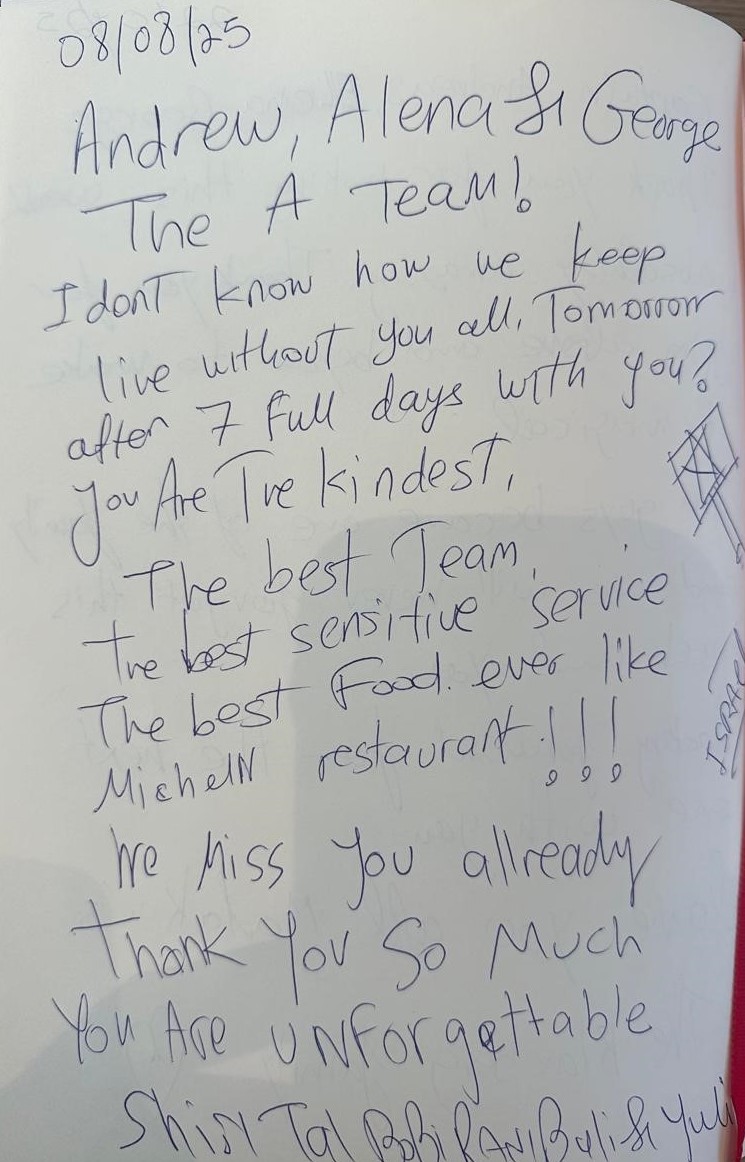 08/08/25
Andrew, Alena & George
The A Team!
I dont know how we keep
live without you all, Tomorrow
after 7 full days with you?
you Are The kindest,
The best Team,
The best sensitive service
The best Food. ever like
MichelN restaurant!!!
We Miss You allready
Thank You So Much
You Are UNForgettable
Tal Bobi RANi & Yuli
ISRAEL